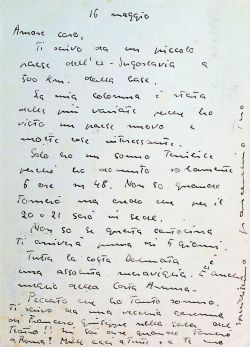 16 maggio
Amore caro,
Ti scrivo da un piccolo
paese dell'ex-Jugoslavia a
500 km. dalla base.
La mia colonna è stata
delle più variate perché ho
visto un paese nuovo e
molte cose interessanti.
Solo ho un sonno terribile
perché ho dormito solamente
6 ore in 48. Non so quando
tornerò ma credo che per il
20 o 21 sarò in sede.
Non so se questa cartolina
ti arriverà prima di 5 giorni.
Tutta la costa Dalmata è
una assoluta meraviglia. È anche
meglio della Costa
Peccato che ho tanto sonno.
Ti scrivo da una vecchia caserma
di Francesco Giuseppe nella sala del
Teatro!! Mi sai dire quando
a Roma? Mille baci a tutti e a te